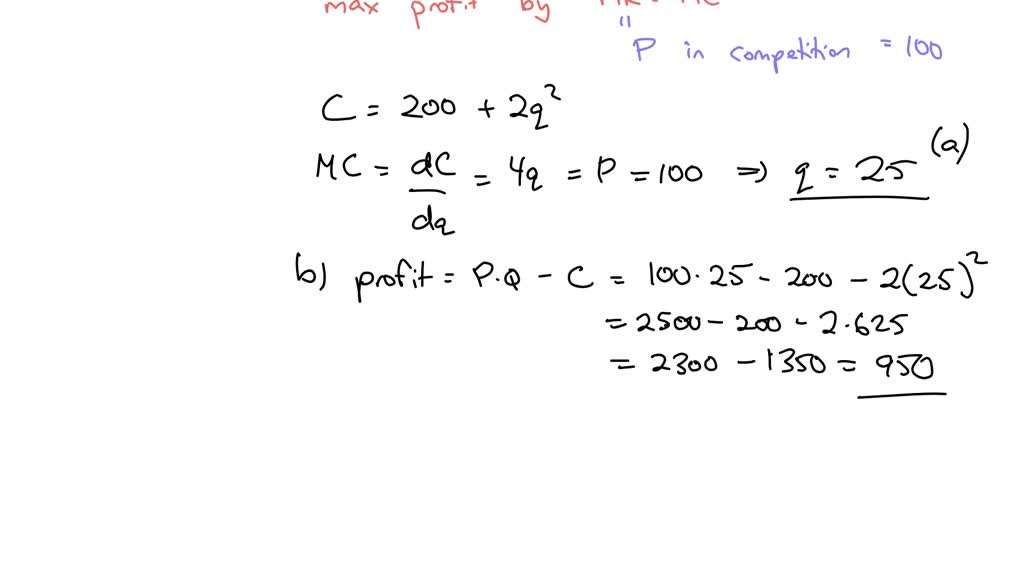 max profit by MR = MC
"
P in competition = 100
C = 200 + 2q²
MC = dC/dq = 4q = P = 100 ⇒ q = 25 (a)
b) profit = P.Q - C = 100·25 - 200 - 2(25)²
= 2500 - 200 - 2·625
= 2300 - 1350 = 950